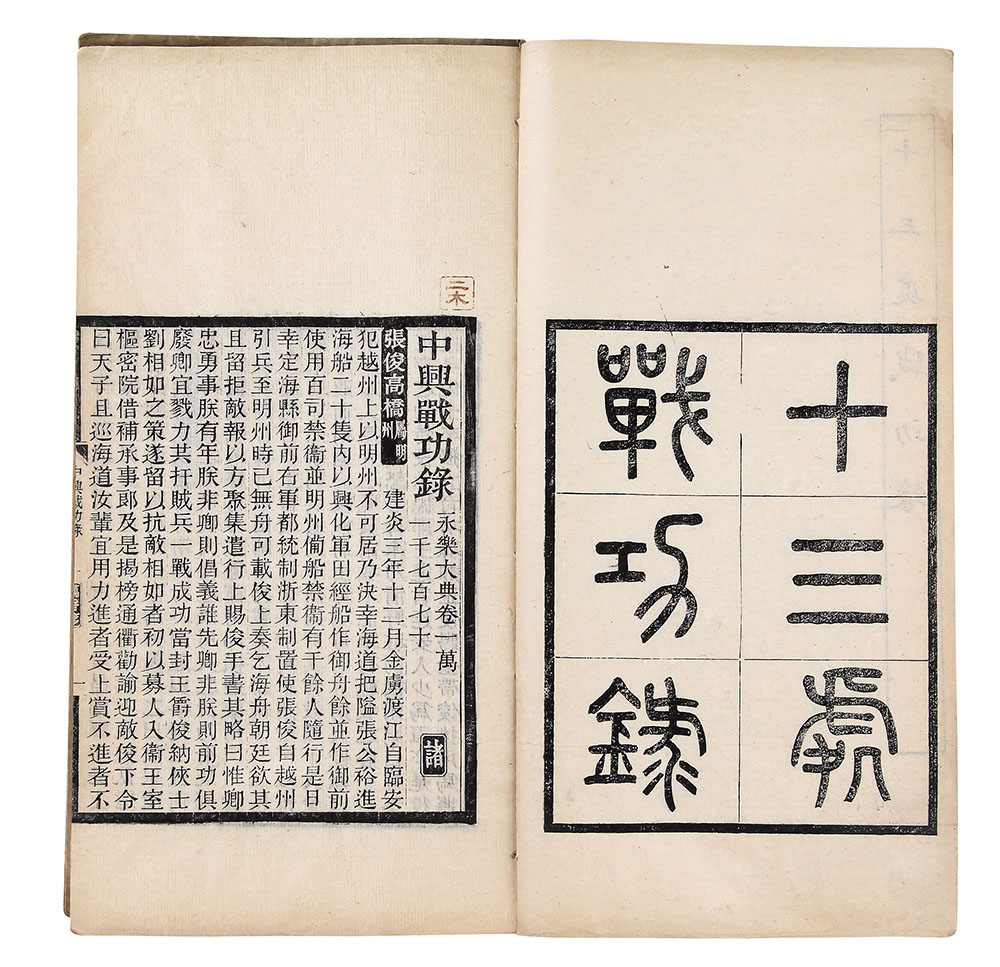 十三處
戰功錄
二木
中興戰功錄 永樂大典卷一萬
一千七百七十 諸
張俊高橋屬明州 建炎三年十二月金虜渡江自臨安
犯越州上以明州不可居乃決幸海道把隘張公裕進
海船二十隻內以興化軍田經船作御舟餘並作御前
使用百司禁衞並明州備船禁衞有千餘人隨行是日
幸定海縣御前右軍都統制浙東制置使張俊自越州
引兵至明州時已無舟可載俊上奏乞海舟朝廷欲其
且留拒敵報以方聚集遣行上賜俊手書其略曰惟卿
忠勇事朕有年朕非卿則倡義誰先卿非朕則前功俱
廢卿宜戮力共扞賊兵一戰成功當封王爵俊納俠士
劉相如之策遂留以抗敵相如者初以募人入衞王室
樞密院借補承事郎及是揭榜通衢勸諭迎敵俊下令
曰天子且巡海道汝輩宜用力進者受上賞不進者不
中興戰功錄
一